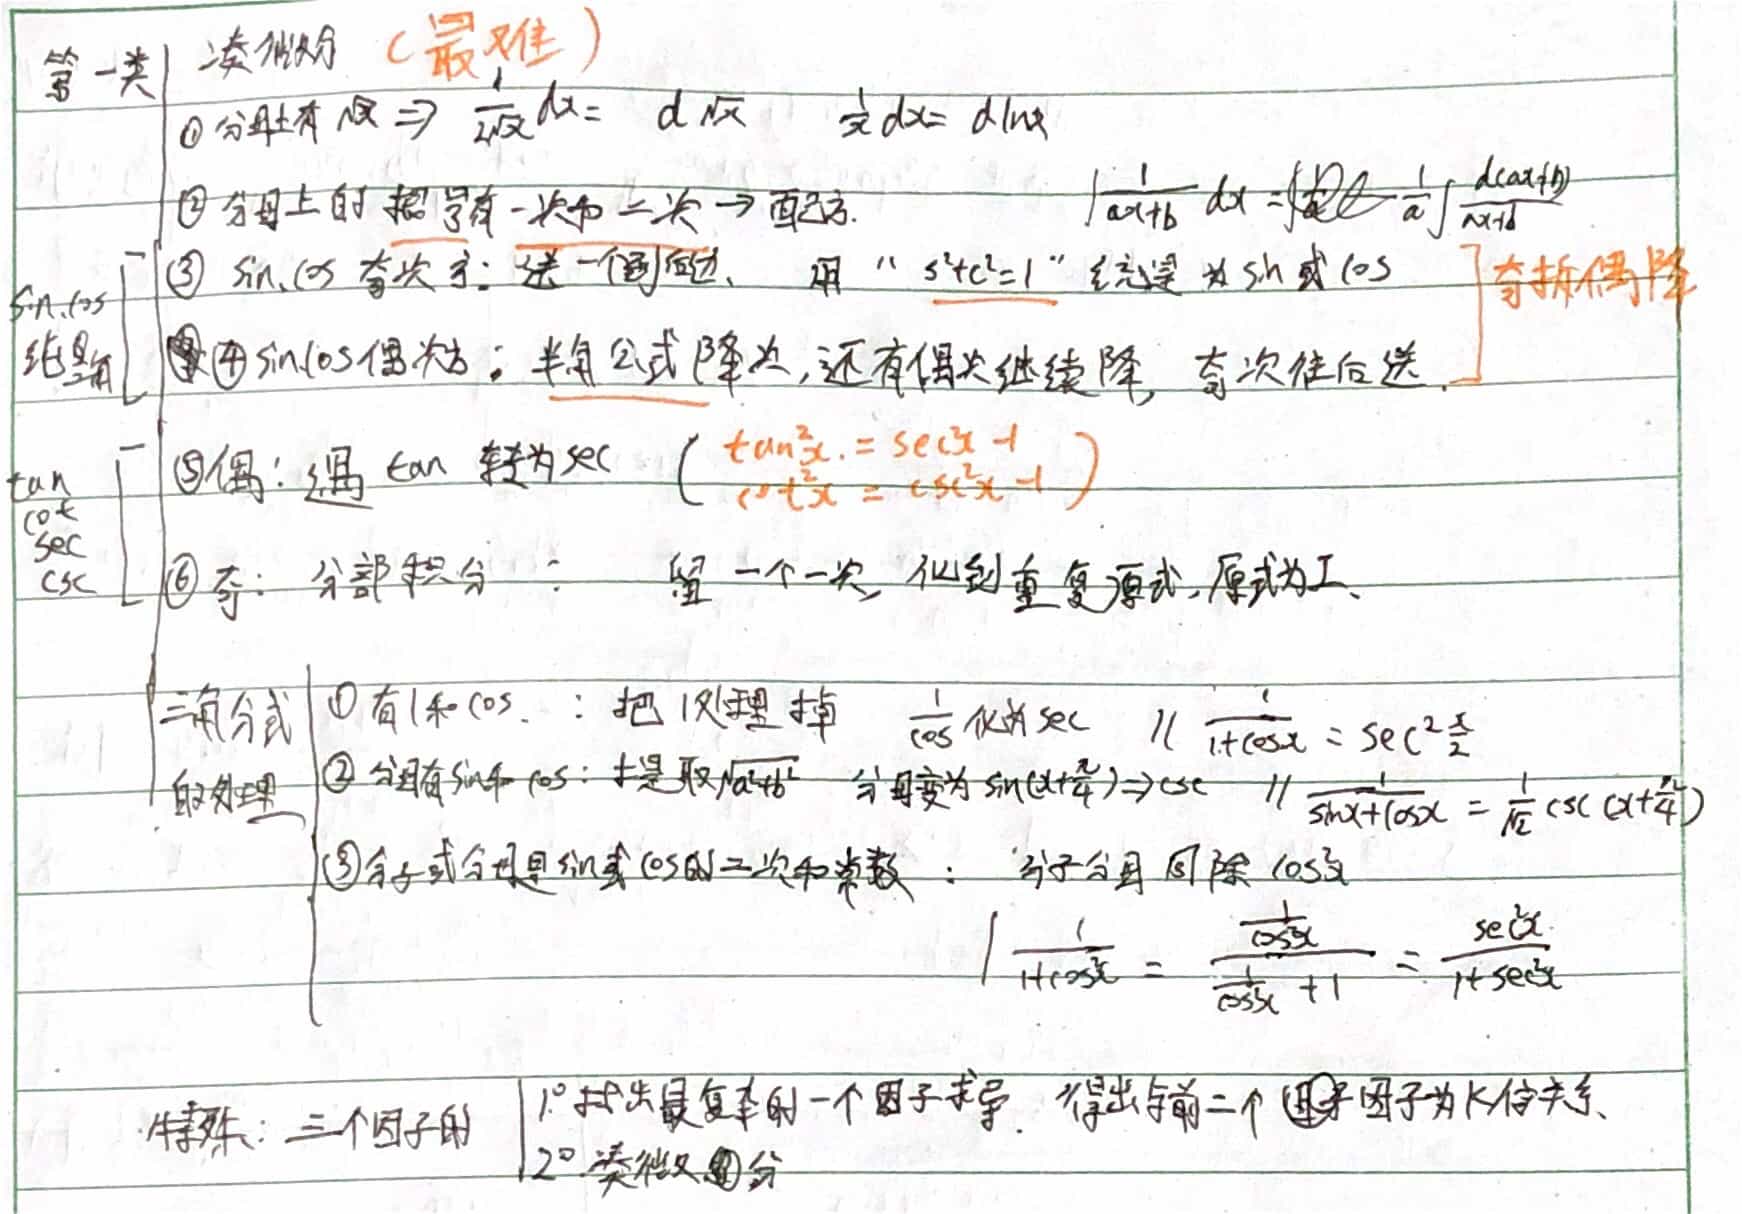 第一类 凑微分 (最难)
① 分母上有 √x ⇒ 1/(2√x) dx = d√x 1/x dx = dlnx
② 分母上的 有一次和二次 → 配方. ∫ 1/(ax+b) dx = 1/a ∫ d(ax+b)/(ax+b)
sin.cos
③ sin.cos 奇次方: 送一个到后边、 用 "s²+c²=1" 统一 为 sin 或 cos
奇拆偶降
④ sin cos 偶次方: 半角公式降次,还有偶次继续降, 奇次往后送.
tan
cot
sec
csc
⑤ 偶: 遇 tan 转为 sec ( tan²x = sec²x -1
cot²x = csc²x -1 )
⑥ 奇: 分部积分 : 留一个一次, 化到重复原式, 原式为I、
三角分式
的处理
① 有1和cos. : 把1处理掉 1/cos 化为 sec // 1/(1+cosx) = sec² x/2
② 分母有sin和cos: 提取√(a²+b²) 分母变为 sin(x+π/4) ⇒ csc // 1/(sinx+cosx) = 1/√2 csc (x+π/4)
③ 分子或分母是sin或cos的二次和常数 : 分子分母同除 cos²x
∫ 1/(1+cos²x) = (1/cos²x)/(1/cos²x + 1) = sec²x/(1+sec²x)
特殊: 三个因子的
1° 找出最复杂的一个因子求导. 得出与前二个因子为K倍关系、
2° 凑微分